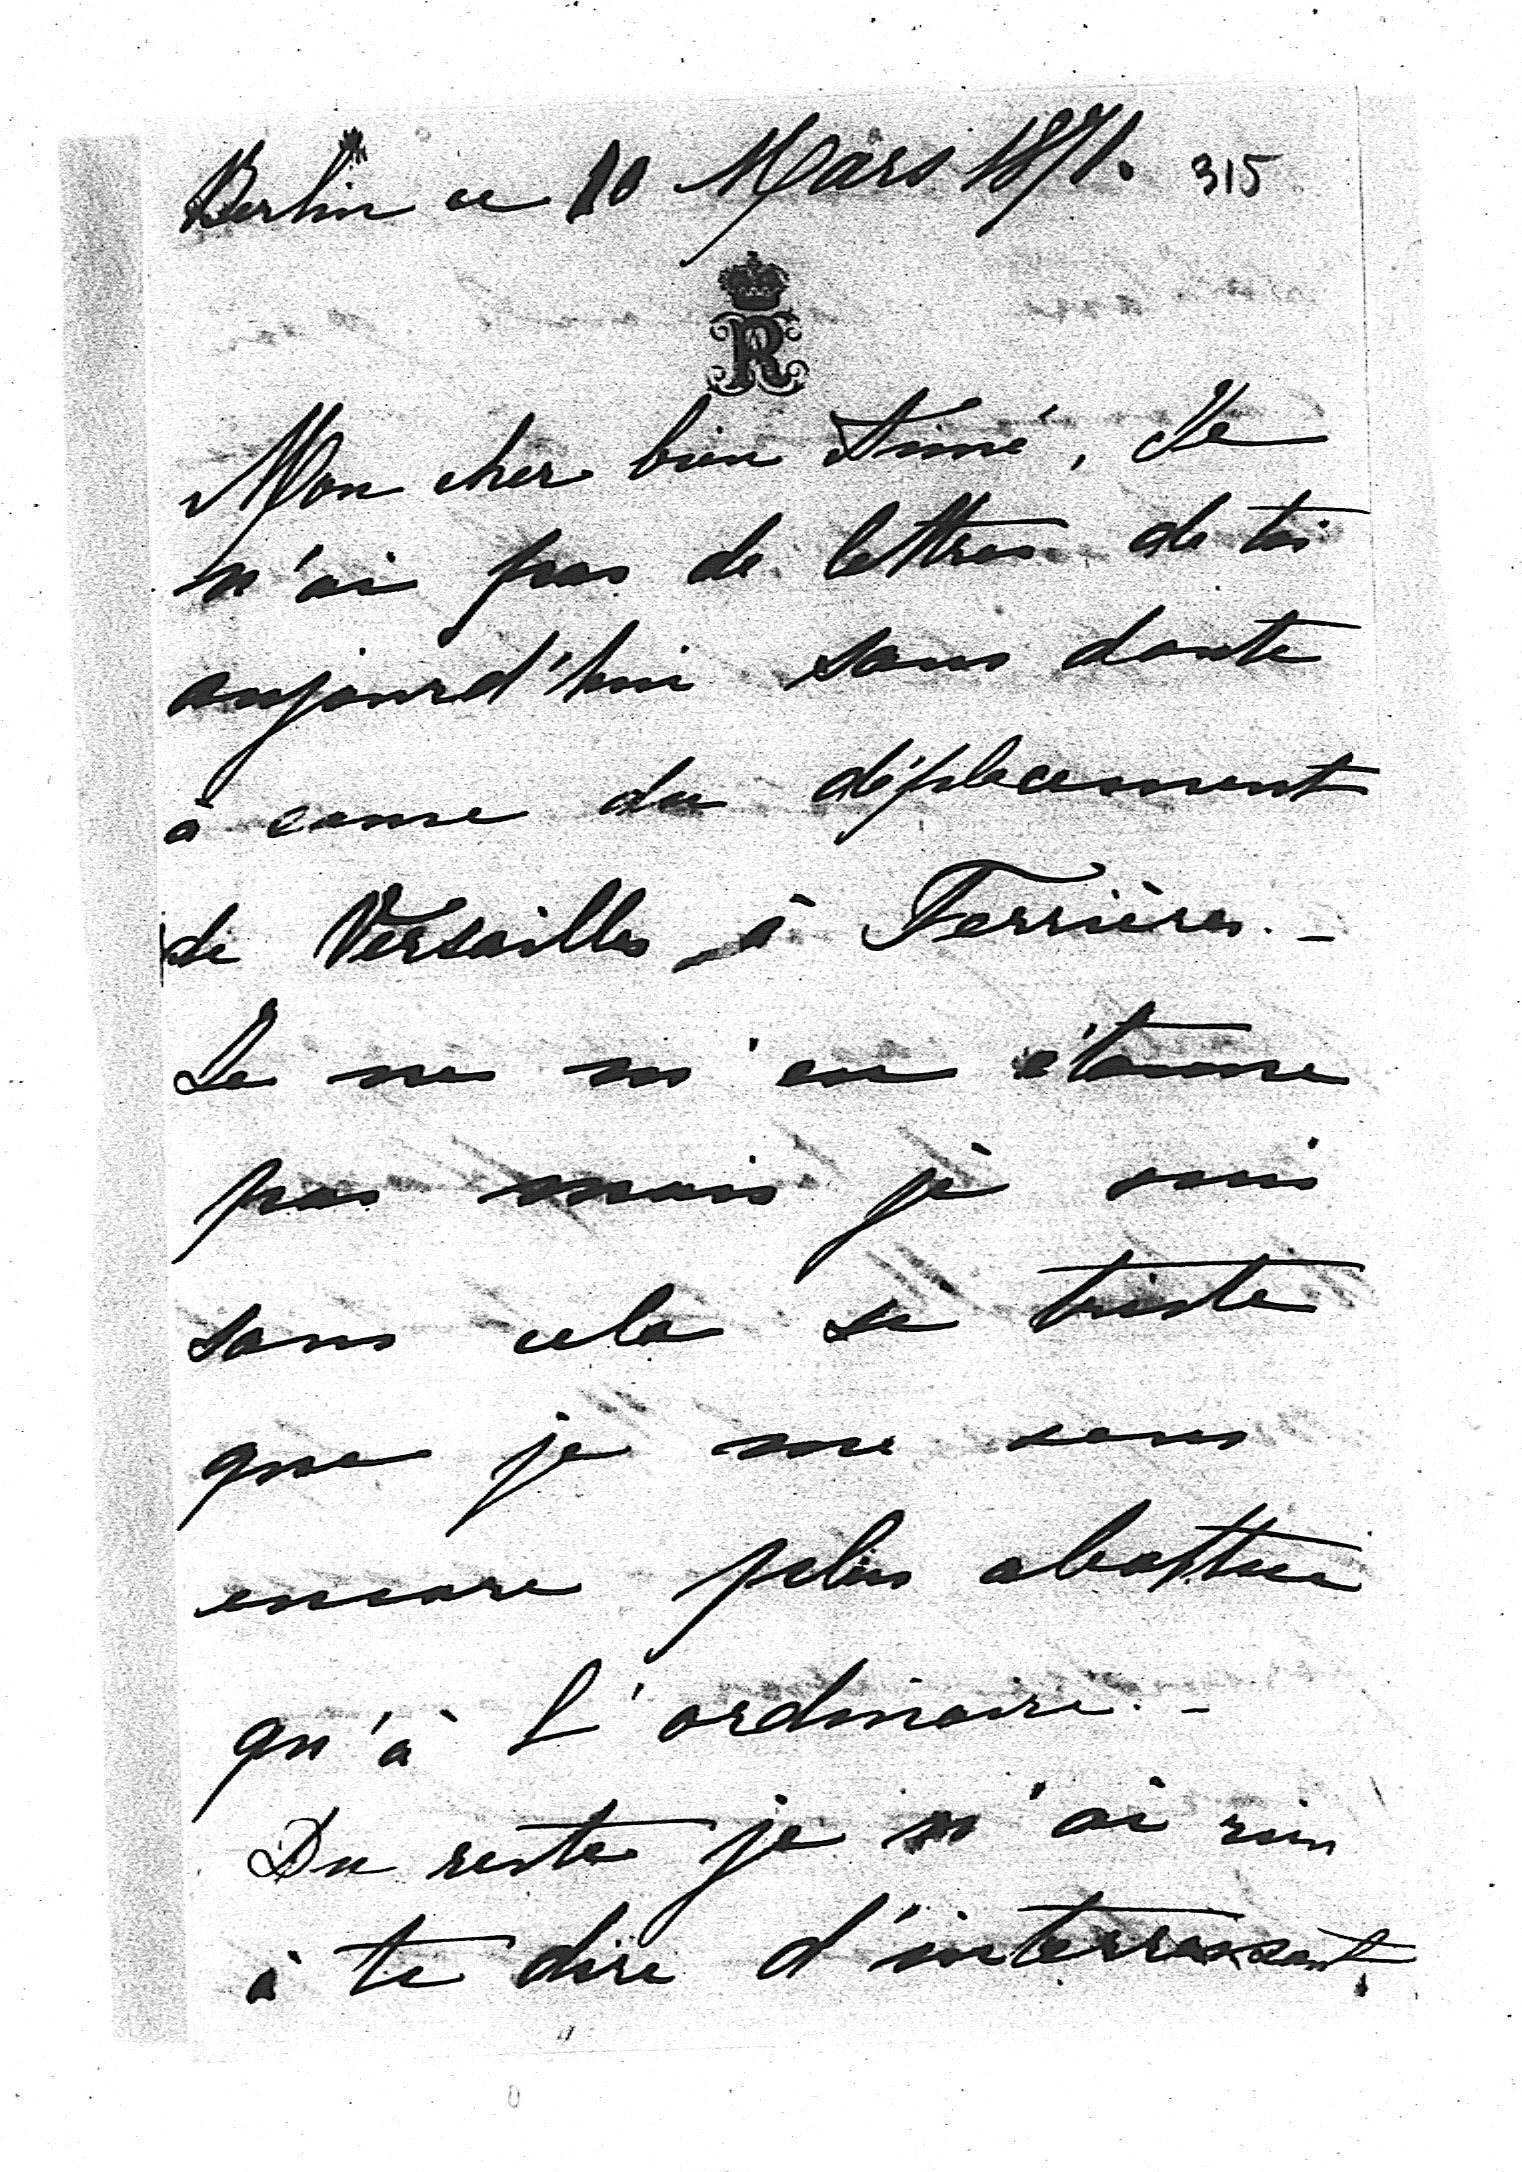 Berlin ce 10 Mars 1871. 315
R
Mon cher bien Aimé, Je
n'ai pas de lettres de toi
aujourd'hui sans doute
à cause du déplacement
de Versailles à Ferrières. -
Je ne m'en étonne
pas mais je suis
sans cela si triste
que je me sens
encore plus abattue
qu'à l'ordinaire. -
Du reste je n'ai rien
à te dire d'interressant,